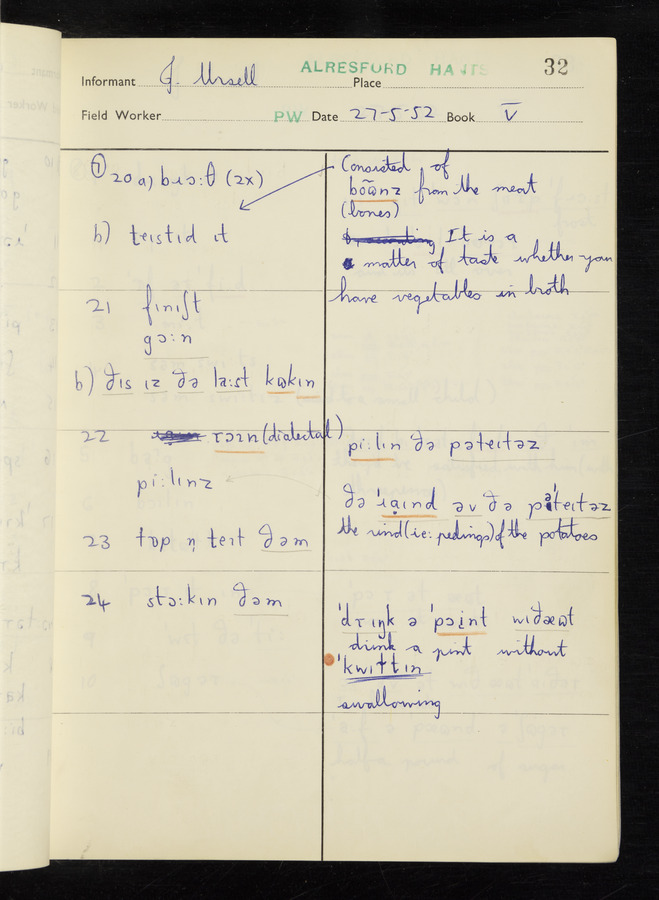 ALRESFORD HANTS 32
Informant J. Ursell Place
Field Worker PW Date 27-5-52 Book V
① 20 a) bɹɔ:θ (2x)
b) teɪstɪd ɪt
21 fɪnɪʃt
gɔ:n
b) ðɪs ɪz ðə la:st kʊkɪn
22 ɾɔɪn (dialectal)
pi:lɪnz
23 tɒp n̩ teɪt ðəm
24 stɔ:kɪn ðəm
Consisted of
bõʊ̃nz from the meat
(bones)
It is a
matter of taste whether you
have vegetables in broth
pi:lɪn ðə pəteɪtəz
ðə ˈɹaɪnd əv ðə pəˈteɪtəz
the rind (ie: peelings) of the potatoes
ˈdɾɪŋk ə ˈpɔɪnt wɪðæʊt
drink a pint without
ˈkwɪɫtɪn
swallowing